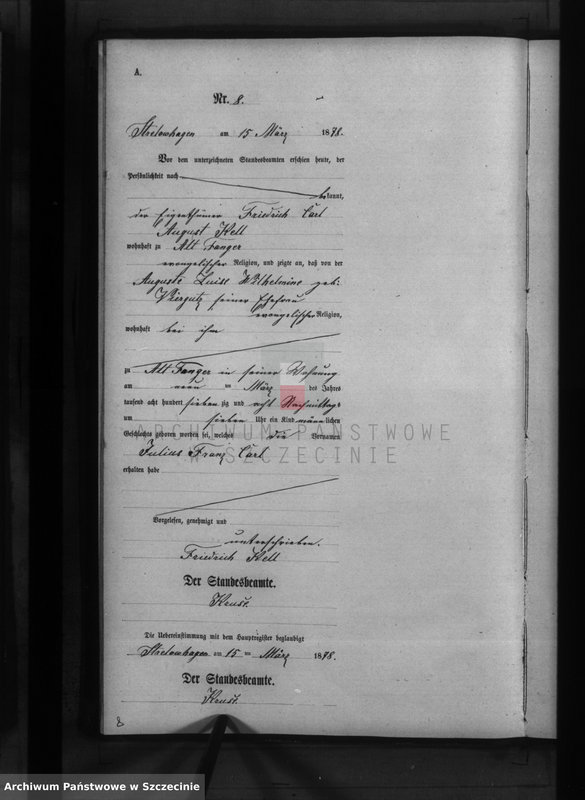 A.
Nr. 8.
Strelowhagen am 15 März 1878.
Vor dem unterzeichneten Standesbeamten erschien heute, der
Persönlichkeit nach
bekannt,
der Eigenthümer Friedrich Carl
August Kell
wohnhaft zu Alt Fanger
evangelischer Religion, und zeigte an, daß von der
Auguste Luise Wilhelmine geb:
seiner Ehefrau
evangelischer Religion,
wohnhaft bei ihm
zu Alt Fanger in seiner Wohnung
am neun ten März des Jahres
tausend acht hundert siebenzig und acht Nachmittags
um sieben Uhr ein Kind männlichen
Geschlechts geboren worden sei, welches die Vornamen
Julius Franz Carl
erhalten habe
Vorgelesen, genehmigt und
unterschrieben.
Friedrich Kell
Der Standesbeamte.
Die Uebereinstimmung mit dem Hauptregister beglaubigt
Strelowhagen am 15 ten März 1878.
Der Standesbeamte.
8
ARCHIWUM PAŃSTWOWE
W SZCZECINIE
Archiwum Państwowe w Szczecinie